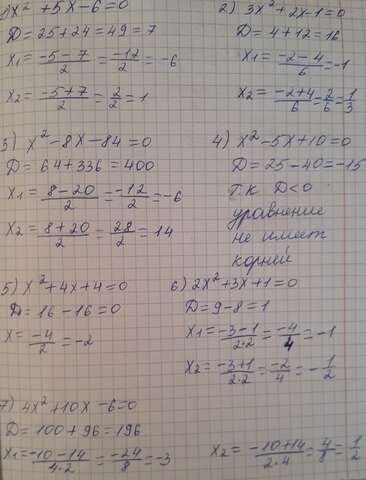 1) x² + 5x - 6 = 0
D = 25 + 24 = 49 = 7
x1 = (-5 - 7)/2 = -12/2 = -6
x2 = (-5 + 7)/2 = 2/2 = 1
2) 3x² + 2x - 1 = 0
D = 4 + 12 = 16
x1 = (-2 - 4)/6 = -1
x2 = (-2 + 4)/6 = 2/6 = 1/3
3) x² - 8x - 84 = 0
D = 64 + 336 = 400
x1 = (8 - 20)/2 = -12/2 = -6
x2 = (8 + 20)/2 = 28/2 = 14
4) x² - 5x + 10 = 0
D = 25 - 40 = -15
т.к D < 0
уравнение
не имеет
корней
5) x² + 4x + 4 = 0
D = 16 - 16 = 0
x = -4/2 = -2
6) 2x² + 3x + 1 = 0
D = 9 - 8 = 1
x1 = (-3 - 1)/(2·2) = -4/4 = -1
x2 = (-3 + 1)/(2·2) = -2/4 = -1/2
7) 4x² + 10x - 6 = 0
D = 100 + 96 = 196
x1 = (-10 - 14)/(4·2) = -24/8 = -3
x2 = (-10 + 14)/(2·4) = 4/8 = 1/2